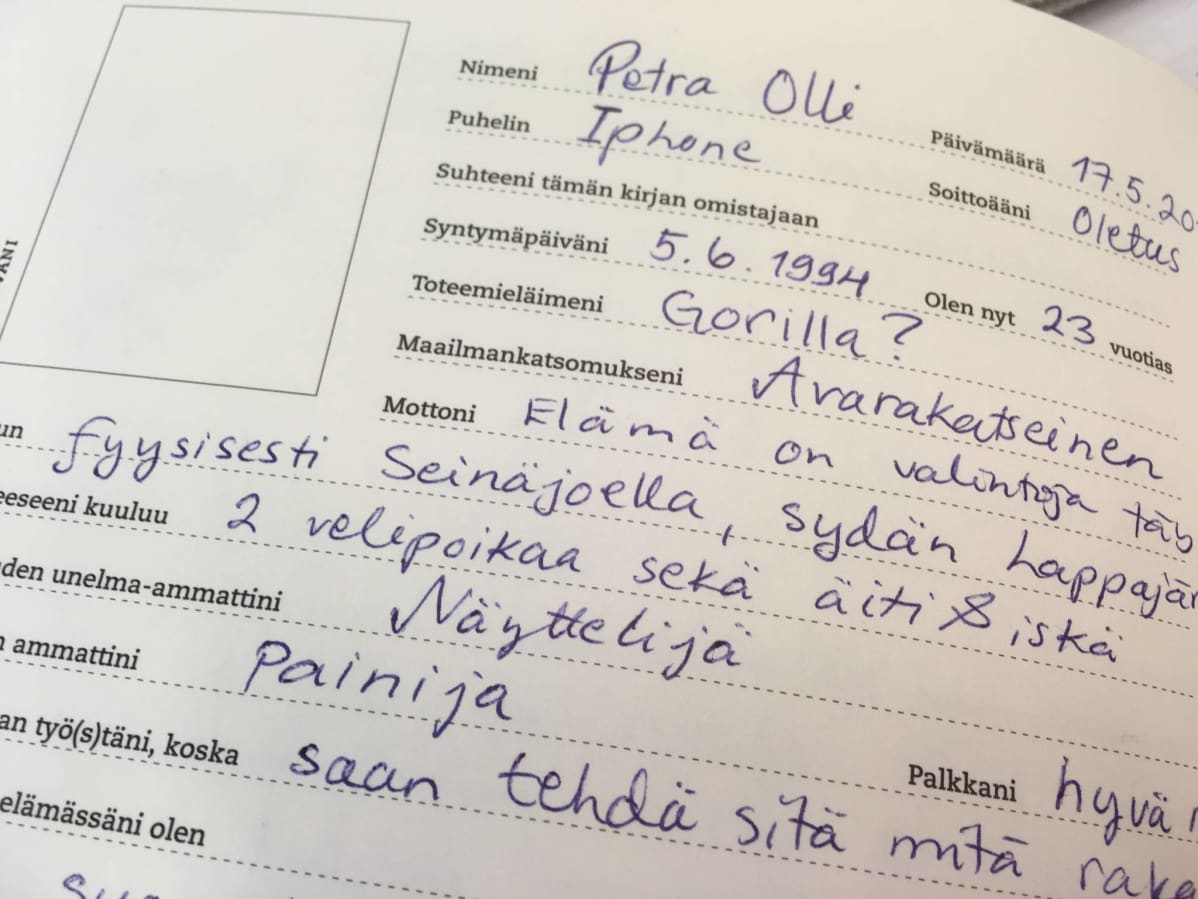 Nimeni Petra Olli Päivämäärä 17.5.20
Puhelin Iphone Soittoääni Oletus
Suhteeni tämän kirjan omistajaan
Syntymäpäiväni 5.6.1994 Olen nyt 23 vuotias
Toteemieläimeni Gorilla?
Maailmankatsomukseni Avarakatseinen
Mottoni Elämä on valintoja täy
un fyysisesti Seinäjoella, sydän Lappajär
eeseeni kuuluu 2 velipoikaa sekä äiti & iskä
den unelma-ammattini Näyttelijä
ammattini Painija Palkkani hyvä
an työ(s)täni, koska saan tehdä sitä mitä raka
elämässäni olen